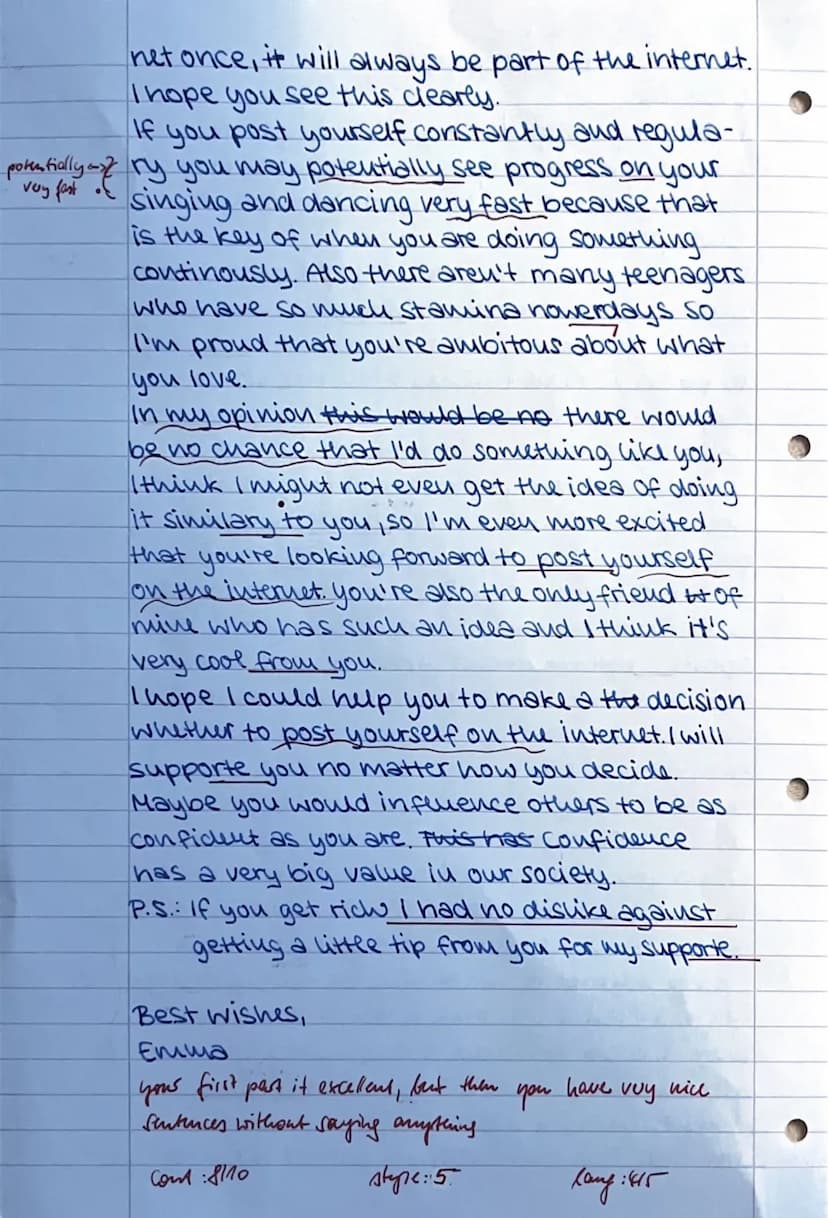 net once, it will always be part of the internet.
I hope you see this clearly.
If you post yourself constantly and regula-
potentially <-> ry you may potentially see progress on your
very fast singing and dancing very fast because that
is the key of when you are doing something
continously. Also there aren't many teenagers
who have so much stamina nowerdays so
I'm proud that you're ambitous about what
you love.
In my opinion this would be no there would
be no chance that I'd do something like you,
I think I might not even get the idea of doing
it similary to you, so I'm even more excited
that you're looking forward to post yourself
on the internet. You're also the only friend of
mine who has such an idea and I think it's
very cool from you.
I hope I could help you to make a decision
whether to post yourself on the internet. I will
supporte you no matter how you decide.
Maybe you would influence others to be as
confident as you are. This has Confidence
has a very big value in our society.
P.S.: If you get rich I had no dislike against
getting a little tip from you for my supporte.
Best wishes,
Emma
your first part it excellent, but then you have very nice
sentences without saying anything
Cont : 8/10 style : 5 lang : 4/5